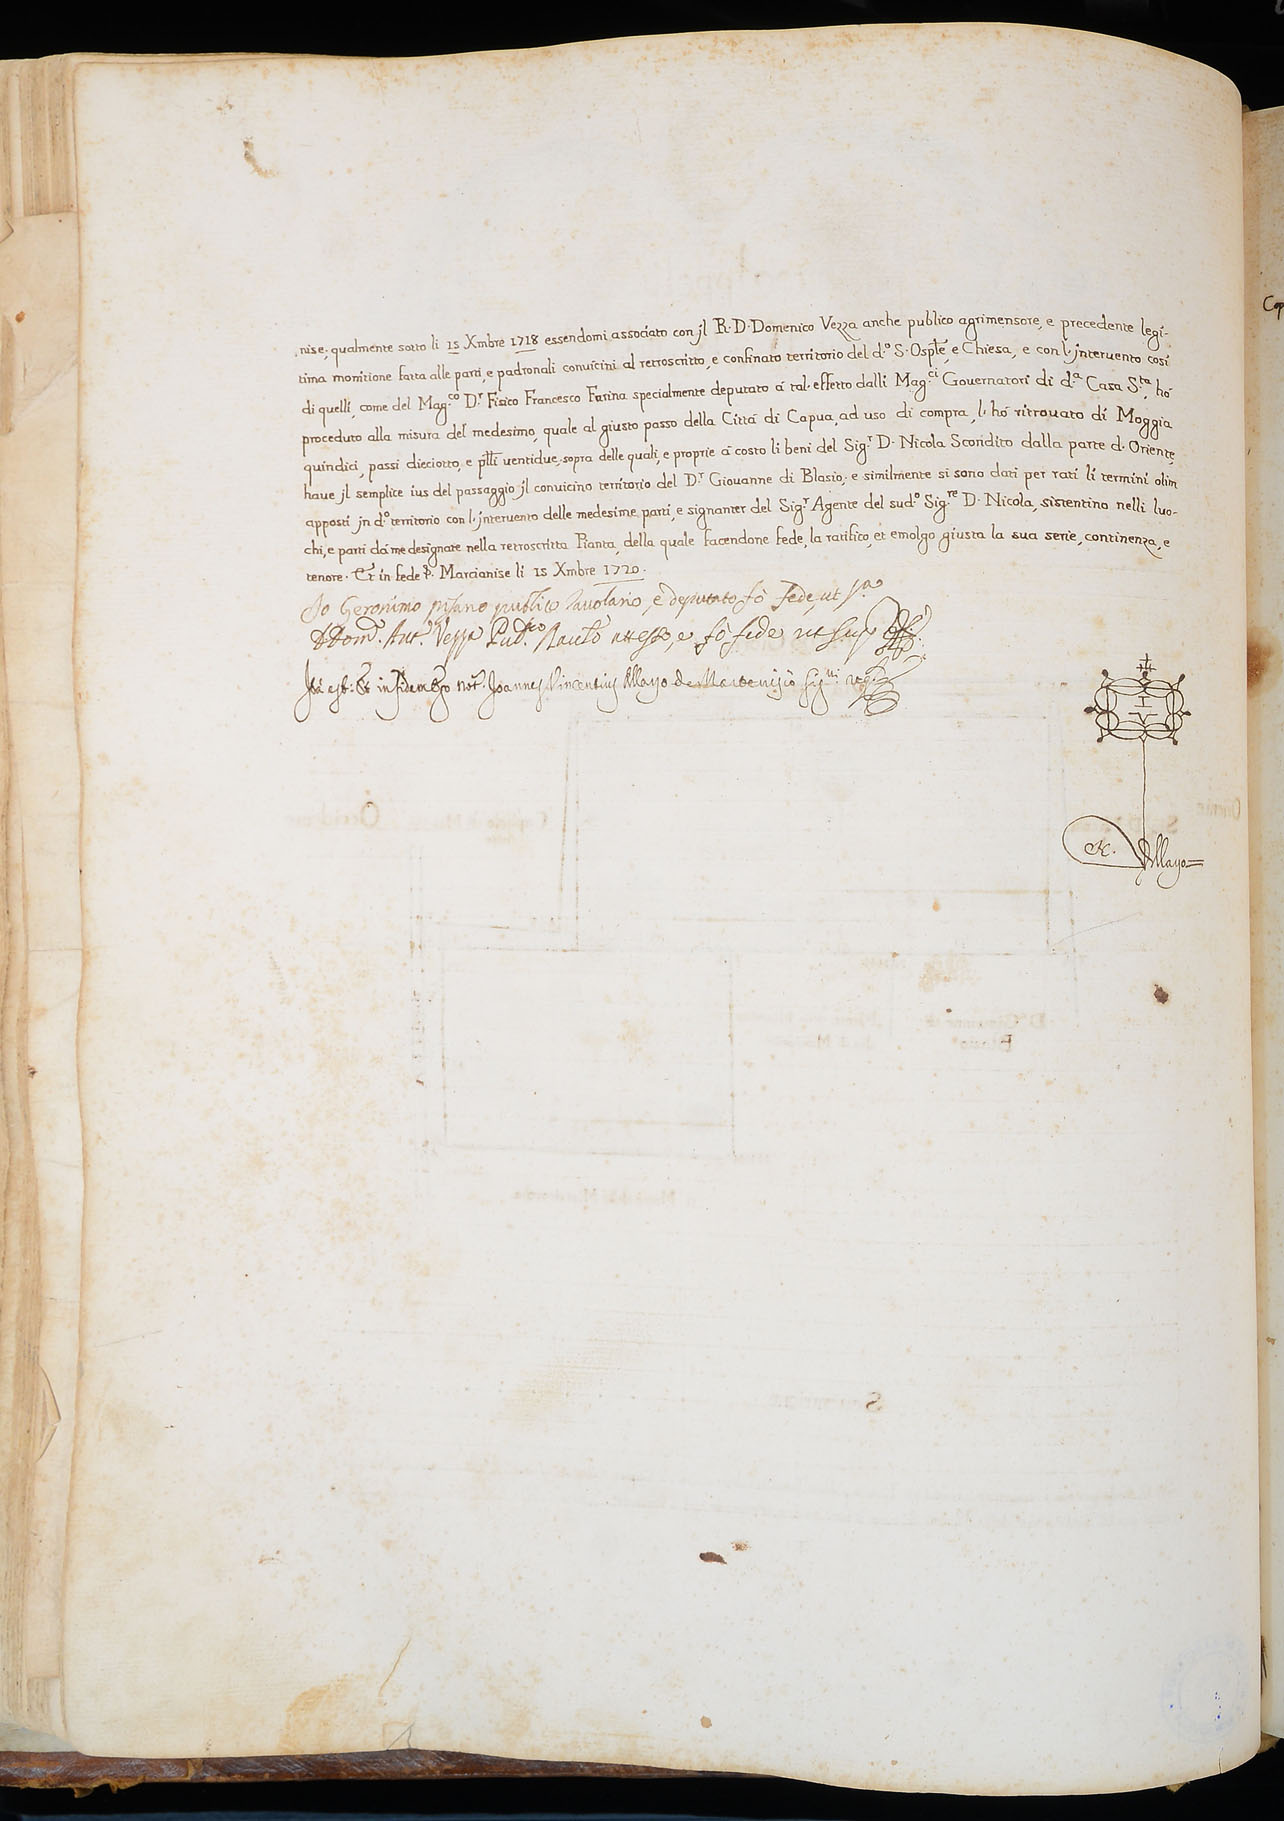 nise; qualmente sotto li 15 Xmbre 1718 essendomi associato con jl R. D. Domenico Vezza anche publico agrimensore, e precedente legi-
tima monitione fatta alle parti, e padronali convicini al retroscritto, e confinato territorio del d.º S. Osp̃le, e Chiesa, e con l'jntervento così
di quelli, come del Mag.co D.r Fisico Francesco Farina specialmente deputato à tal effetto dalli Mag.ci Governatori di d.a Casa S.ta, hò
proceduto alla misura del medesimo, quale al giusto passo della Città di Capua, ad uso di compra, l'hò ritrovato di Moggia
quindici, passi dieciotto, e p̃lli ventidue, sopra delle quali, e proprie à costo li beni del Sig.r D. Nicola Scondito dalla parte d'Oriente,
have jl semplice ius del passaggio jl convicino territorio del D.r Giovanne di Blasio; e similmente si sono dati per rati li termini olim
apposti jn d.º territorio con l'jntervento delle medesime parti, e signanter del Sig.r Agente del sud.º Sig.re D. Nicola, sistentino nelli luo-
chi, e parti dà me designate nella retroscritta Pianta, della quale facendone fede, la ratifico, et emolgo giusta la sua serie, continenza, e
tenore. Et in fede &. Marcianise li 15 Xmbre 1720.
Io Geronimo pisano publico tavolario, e deputato fò fede, ut s.a
D Dom.º Ant.º Vezza Pub.co Tavol.o attesto, e fò fede ut sup.
Ità est: Et in fidem Ego not.s Joannes Vincentius Mayo de Marcenisio sig.vi rog.s
I
V
N. Mayo
Cop